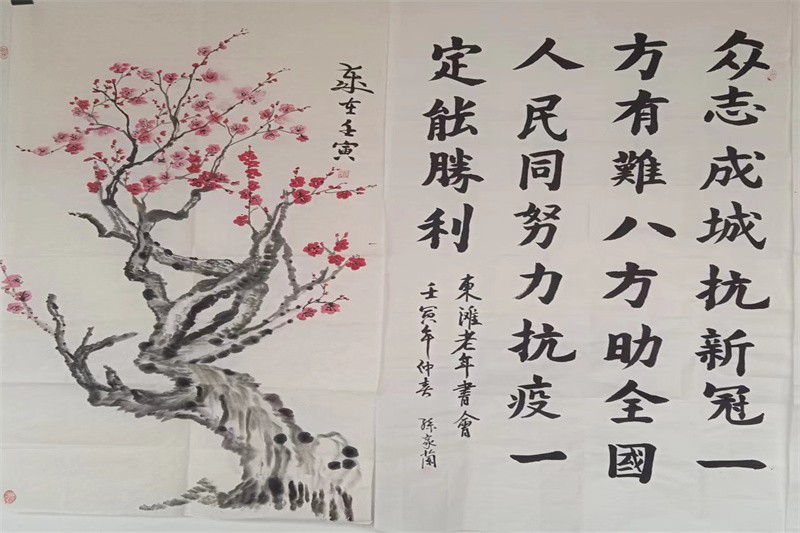 众志成城抗新冠一
方有難八方助全國
人民同努力抗疫一
定能勝利
東滩老年書會
壬寅年仲春
壬寅